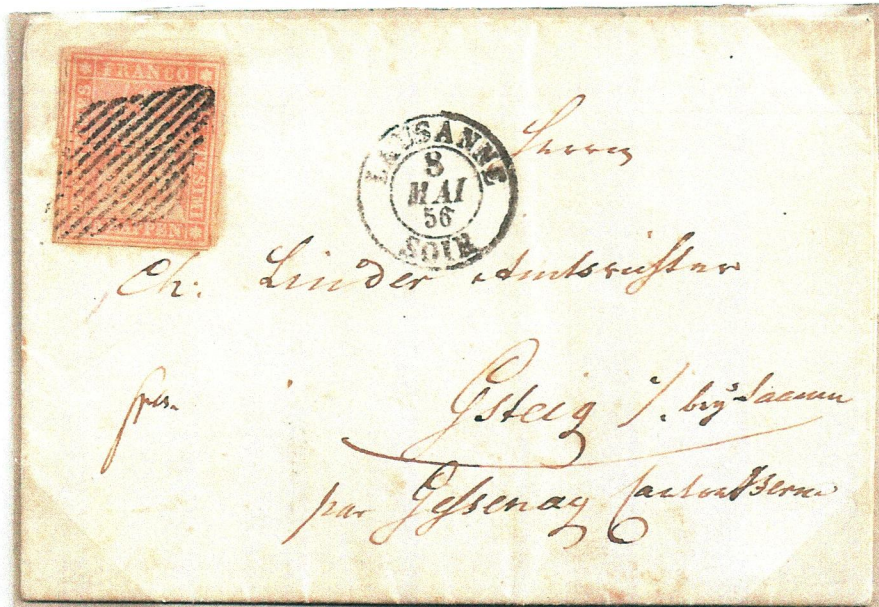 FRANCO
RAPPEN
LAUSANNE
8
MAI
56
SOIR
Herrn
Ch: Linder Amtsrichter
Gsteig /. bey Saanen
par Gessenay Canton Berne